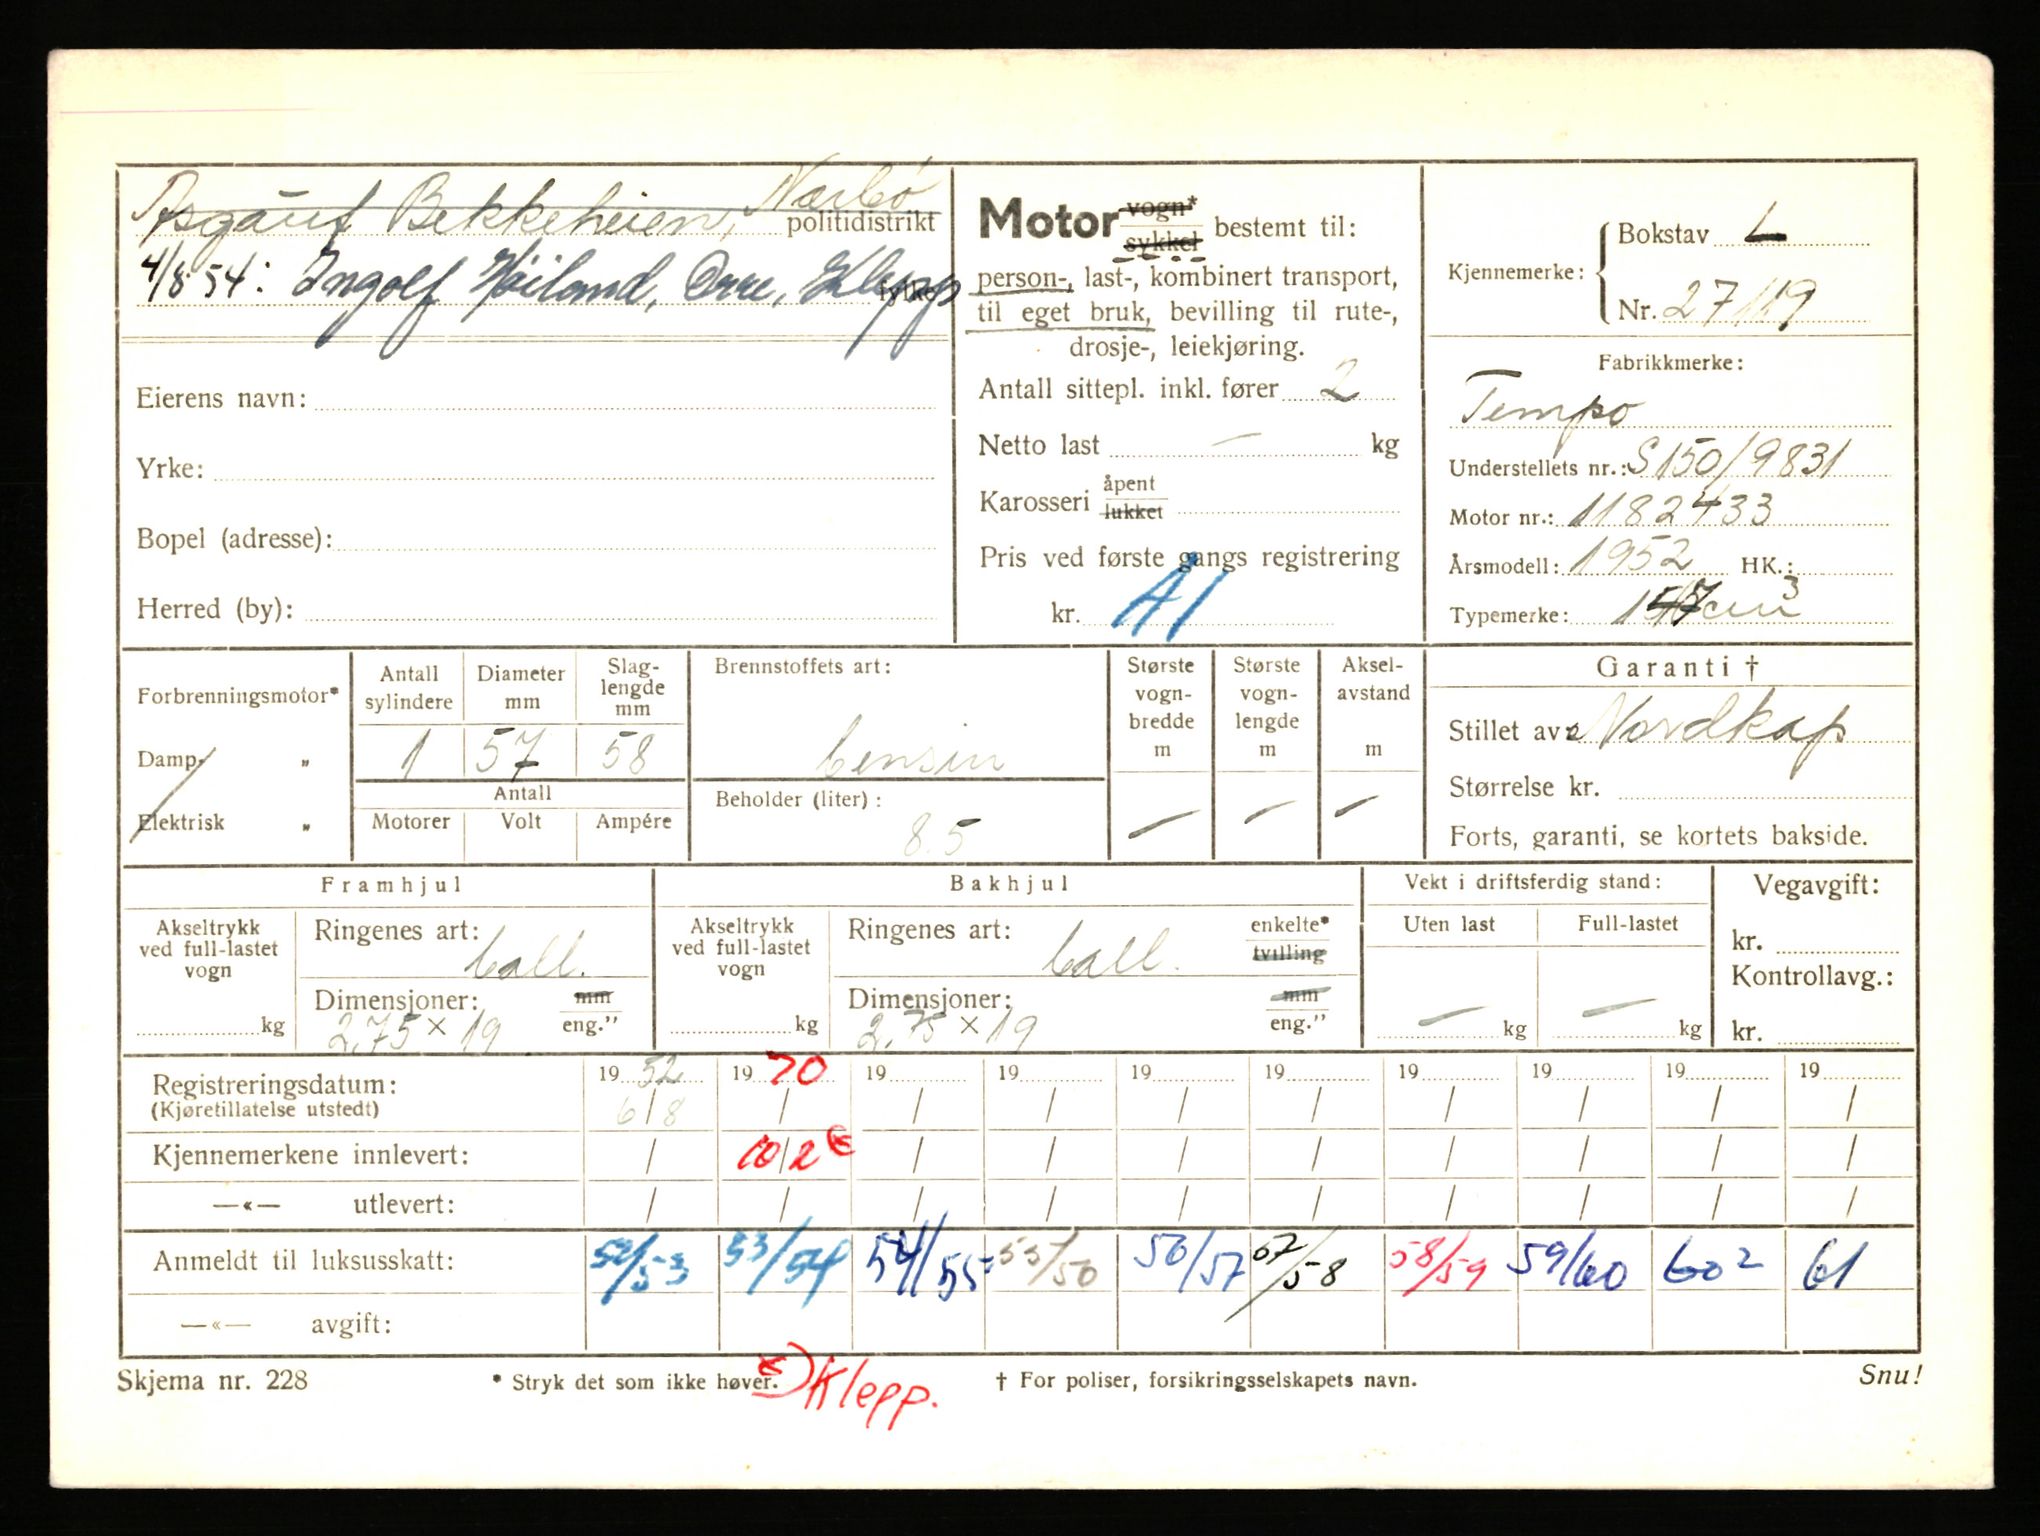 Asgaut Bekkeheien, Nærbö politidistrikt
4/8-54: Ingolf Høiland, Orre, Klepp fylke
Eierens navn:
Yrke:
Bopel (adresse):
Herred (by):
Motor vogn* sykkel bestemt til:
person-, last-, kombinert transport,
til eget bruk, bevilling til rute-,
drosje-, leiekjøring.
Antall sittepl. inkl. fører 2
Netto last — kg
Karosseri åpent lukket
Pris ved første gangs registrering
kr. A1
Kjennemerke: Bokstav L
Nr. 27119
Fabrikkmerke:
Tempo
Understellets nr.: S150/9831
Motor nr.: 1182433
Årsmodell: 1952 HK.:
Typemerke: 147 cm3
Forbrenningsmotor*
Damp- „
Elektrisk „
Antall sylindere 1
Diameter mm 57
Slag-lengde mm 58
Antall
Motorer Volt Ampére
Brennstoffets art:
bensin
Beholder (liter):
8.5
Største vogn-bredde m —
Største vogn-lengde m —
Aksel-avstand m —
Garanti †
Stillet av: Nordkap
Størrelse kr.
Forts, garanti, se kortets bakside.
Framhjul
Akseltrykk ved full-lastet vogn
kg
Ringenes art: ball.
Dimensjoner: mm eng."
2,75 × 19
Bakhjul
Akseltrykk ved full-lastet vogn
kg
Ringenes art: ball. enkelte* tvilling
Dimensjoner: mm eng."
2,75 × 19
Vekt i driftsferdig stand:
Uten last Full-lastet
— kg — kg
Vegavgift:
kr.
Kontrollavg.:
kr.
Registreringsdatum: 19 52 19 70 19 19 19 19 19 19 19 19
(Kjøretillatelse utstedt) 6/8 / / / / / / / / /
Kjennemerkene innlevert: / 10/2 / / / / / / / /
—«— utlevert: / / / / / / / / / /
Anmeldt til luksusskatt: 52/53 53/54 54/55 55/56 56/57 57/58 58/59 59/60 602 61
—«— avgift:
Skjema nr. 228 * Stryk det som ikke høver. † For poliser, forsikringsselskapets navn. Snu!
*) Klepp.